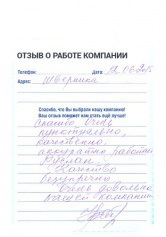 ОТЗЫВ О РАБОТЕ КОМПАНИИ
Телефон: Дата:
Адрес: Шверника
Спасибо, что Вы выбрали нашу компанию!
Ваш отзыв поможет нам стать ещё лучше!
Спасибо очень
пунктуально,
качественно,
аккуратно работает
Руслан.
Качество
безупречно
Очень довольны
вашей компанией